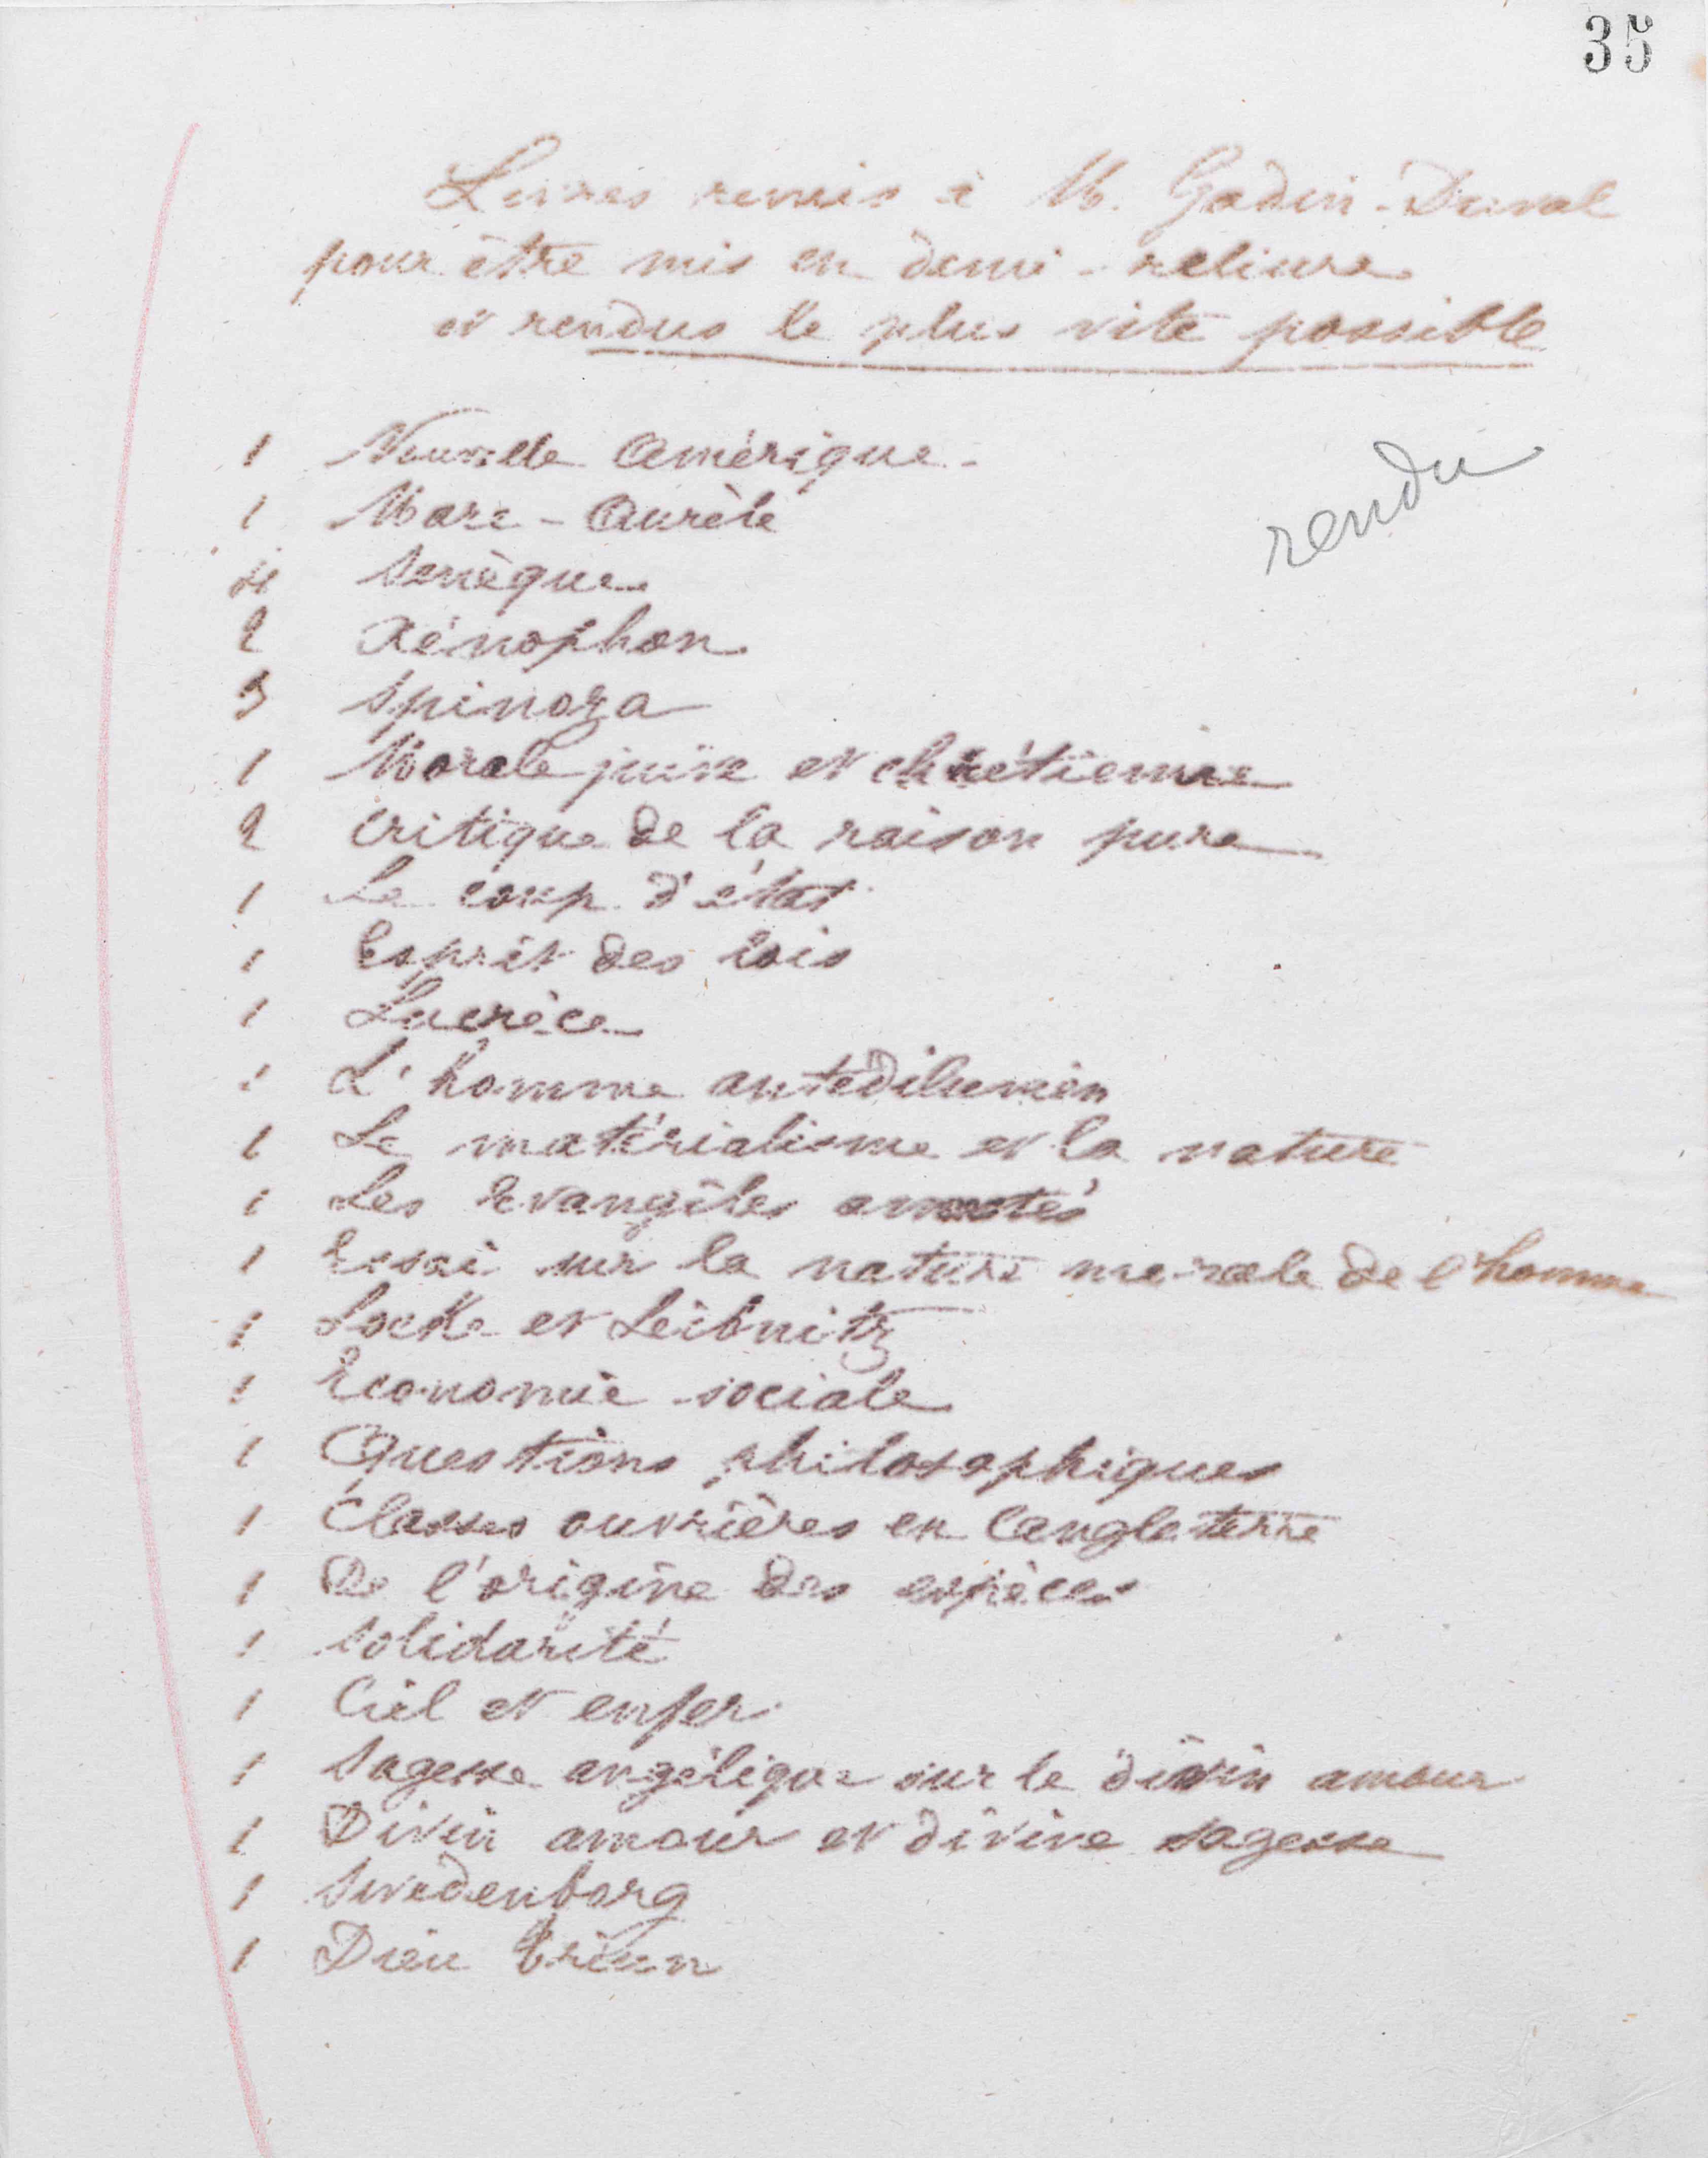 35
Livres remis à M. Godin-Duval
pour être mis en demi-reliure
et rendus le plus vite possible
rendu
1 Nouvelle Amérique
1 Marc-Aurèle
4 Senèque
2 Xénophon
3 Spinoza
1 Morale juive et chrétienne
2 Critique de la raison pure
1 Le coup d'état
1 Esprit des lois
1 Lucrèce
1 L'homme antediluvien
1 Le matérialisme et la nature
1 Les Evangiles annotés
1 Essai sur la nature morale de l'homme
1 Locke et Leibnitz
1 Economie sociale
1 Questions philosophiques
1 Classes ouvrières en Langleterre
1 De l'origine des espèces
1 Solidarité
1 Ciel et enfer
1 Sagesse angélique sur le divin amour
1 Divin amour et divine sagesse
1 Swedenborg
1 Dieu triun